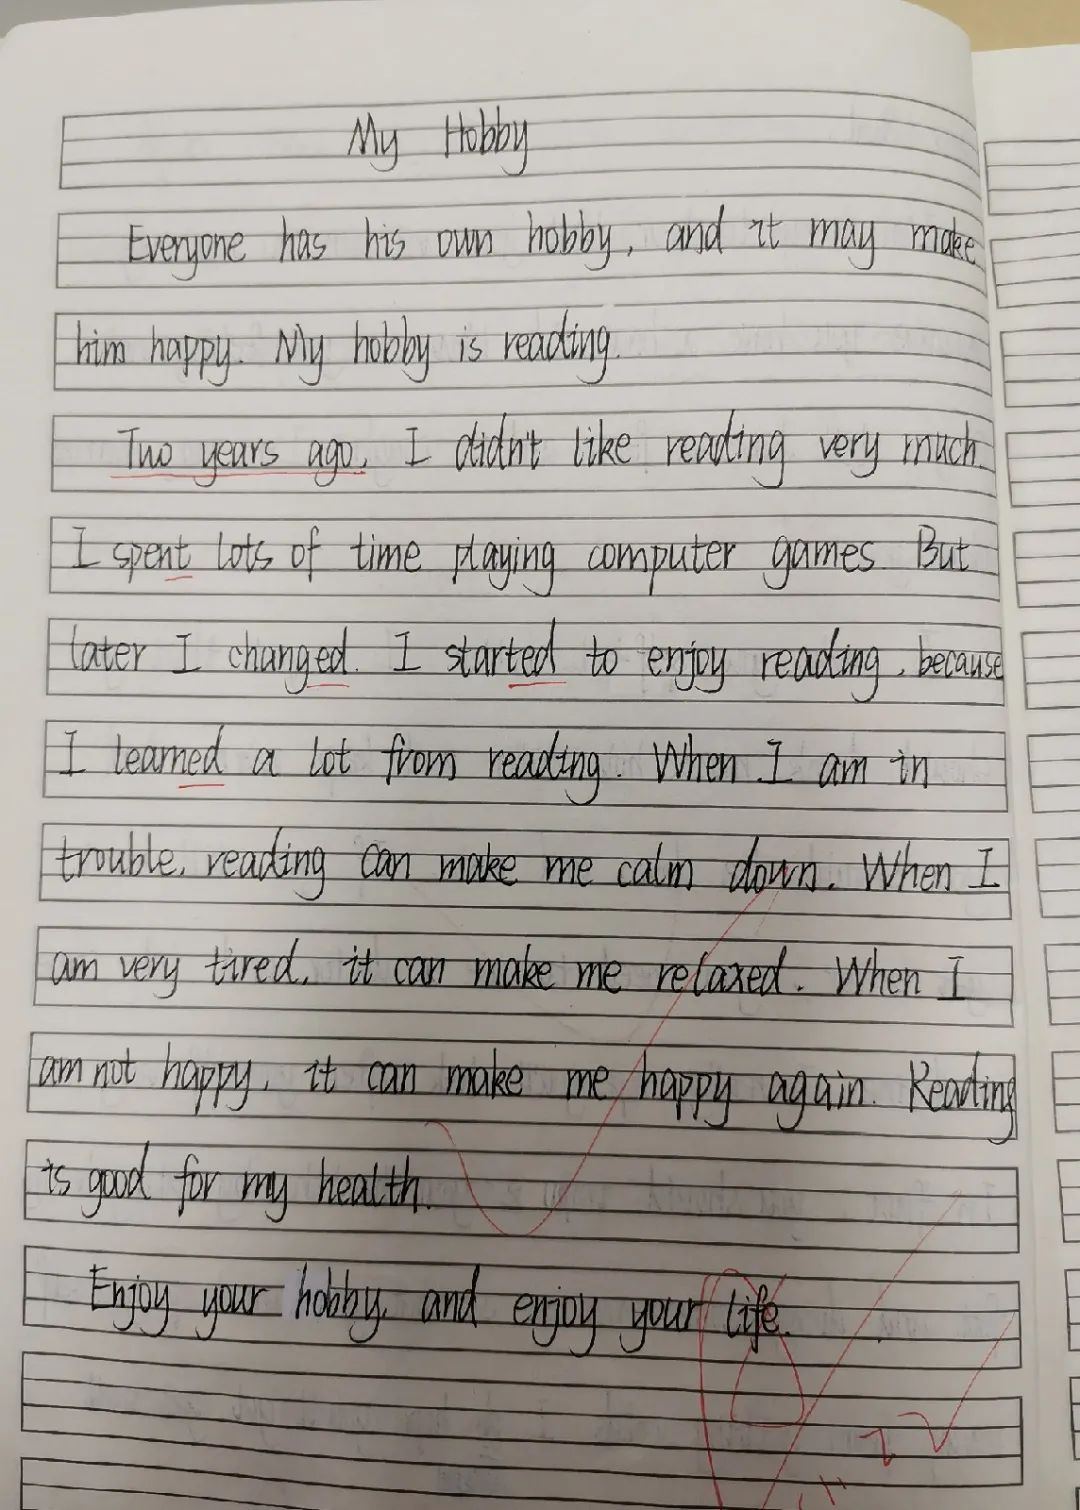 My Hobby
Everyone has his own hobby, and it may make
him happy. My hobby is reading.
Two years ago, I didn't like reading very much.
I spent lots of time playing computer games. But
later I changed. I started to enjoy reading, because
I learned a lot from reading. When I am in
trouble, reading can make me calm down. When I
am very tired, it can make me relaxed. When I
am not happy, it can make me happy again. Reading
is good for my health.
Enjoy your hobby, and enjoy your life.